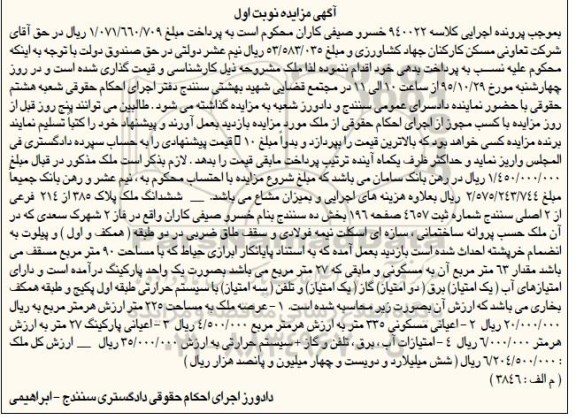 آگهی مزایده نوبت اول
بموجب پرونده اجرایی کلاسه ۹۴۰۰۲۲ خسرو صیفی کاران محکوم است به پرداخت مبلغ ۱/۰۷۱/۶۶۰/۷۰۹ ریال در حق آقای
شرکت تعاونی مسکن کارکنان جهاد کشاورزی و مبلغ ۵۳/۵۸۳/۰۳۵ ریال نیم عشر دولتی در حق صندوق دولت با توجه به اینکه
محکوم علیه نسبت به پرداخت بدهی خود اقدام ننموده لذا ملک مشروحه ذیل کارشناسی و قیمت گذاری شده است و در روز
چهارشنبه مورخ ۹۵/۱۰/۲۹ از ساعت ۱۰ الی ۱۱ در مجتمع قضایی شهید بهشتی سنندج دفتر اجرای احکام حقوقی شعبه هشتم
حقوقی با حضور نماینده دادسرای عمومی سنندج و دادورز شعبه به مزایده گذاشته می شود . طالبین می توانند پنج روز قبل از
روز مزایده با کسب مجوز از اجرای احکام حقوقی از ملک مورد مزایده بازدید بعمل آورند و پیشنهاد خود را کتباً تسلیم نمایند
برنده مزایده کسی خواهد بود که بالاترین قیمت را بپردازد و بدوا مبلغ ۱۰ قیمت پیشنهادی را به حساب سپرده دادگستری فی
المجلس واریز نماید و حداکثر ظرف یکماه آینده ترتیب پرداخت مابقی قیمت را بدهد . لازم بذکر است ملک مذکور در قبال مبلغ
۱/۴۵۰/۰۰۰/۰۰۰ ریال در رهن بانک سامان می باشد که مبلغ شروع مزایده با احتساب محکوم به ، نیم عشر و رهن بانک جمیعا
مبلغ ۲/۵۷۵/۲۴۳/۷۴۴ ریال بعلاوه هزینه های اجرایی و بمیزان مشاع می باشد. __ ششدانگ ملک پلاک ۳۸۵ از ۲۱۴ فرعی
از ۲ اصلی سنندج شماره ثبت ۴۶۵۷ صفحه ۱۹۶ بخش ده سنندج بنام خسرو صیفی کاران واقع در فاز ۲ شهرک سعدی که در
آن ملک حسب پروانه ساختمانی ، سازه ای اسکلت نیمه فولادی و سقف طاق ضربی در دو طبقه ( همکف و اول ) و پیلوت به
انضمام خرپشته احداث شده است بازدید بعمل آمده که به استناد پایانکار ابرازی حیاط که با مساحت ۹۰ متر مربع مسقف می
باشد مقدار ۶۳ متر مربع آن به مسکونی و مابقی که ۲۷ متر مربع می باشد بصورت یک واحد پارکینگ درآمده است و دارای
امتیازهای آب ( یک امتیاز) برق ( دو امتیاز) گاز ( یک امتیاز) و تلفن ( سه امتیاز) با سیستم حرارتی طبقه اول پکیج و طبقه همکف
بخاری می باشد که ارزش آن بصورت زیر محاسبه شده است. ۱ - عرصه ملک به مساحت ۲۲۵ متر ارزش هرمتر مربع به ریال
۲۰/۰۰۰/۰۰۰ ریال ۲ - اعیانی مسکونی ۳۳۵ متر به ارزش هرمتر مربع ۴/۵۰۰/۰۰۰ ریال ۳ - اعیانی پارکینگ ۲۷ متر به ارزش
هرمتر ۶/۰۰۰/۰۰۰ ریال ۴ - امتیازات آب ، برق ، تلفن و گاز + سیستم حرارتی به ارزش ۳۵/۰۰۰/۰۰۰ ریال __ ارزش کل ملک
: ۶/۲۰۴/۵۰۰/۰۰۰ ریال ( شش میلیارد و دویست و چهار میلیون و پانصد هزار ریال )
( م الف : ۳۸۴۶ )
دادورز اجرای احکام حقوقی دادگستری سنندج - ابراهیمی